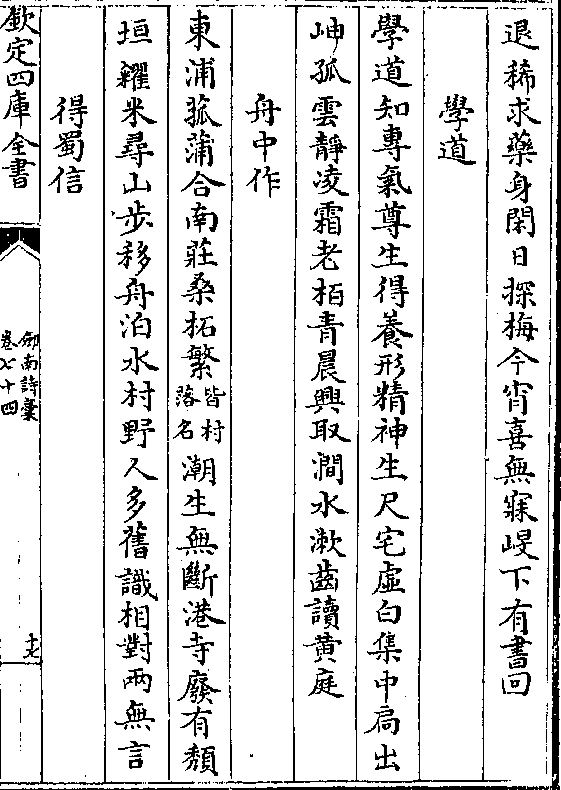 退稀求藥身閑日探梅今宵喜無寐峽下有書回
學道
學道知專氣尊生得養形精神生尺宅虛白集中扃出
岫孤雲靜凌霜老柏青晨興取澗水漱齒讀黄庭
舟中作
東浦菰蒲合南莊桑柘繁皆村落名潮生無斷港寺廢有頽
垣糴米尋山步移舟泊水村野人多舊識相對兩無言
得蜀信
欽定四庫全書
劍南詩藁
卷七十四